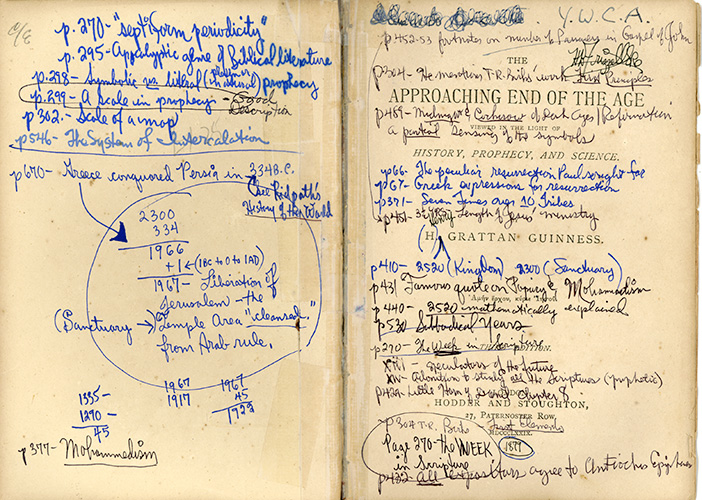 p.270-"septiform periodicity"
p.295-Apocalyptic genre of Biblical literature
p.298- Symbolic vs literal (natural) prophecy
p.299- A Scale in prophecy - Good Description
p.302- Scale of a map
p546- The System of Intercalation
p670- Greece conquered Persia in 334B.C.
(See Ridpath's
History of the World
2300
334
1966
+1 ← (1BC to 0 to 1AD)
1967- Liberation of
Jerusalem - the
(Sanctuary →) Temple Area "cleansed"
from Arab rule.
1335-
1290-
45
1967
1917
1967
45
1922
p377- Mohammedism
Y.W.C.A.
p452-53 footnotes on number of Passovers in Gospel of John
THE
p304- He mentions T.R. Birks' work First Principles
APPROACHING END OF THE AGE
p469- Midnight & of Dark Ages/Reformation
VIEWED IN THE LIGHT OF
A partial sensing of the symbols
HISTORY, PROPHECY, AND SCIENCE.
p66- The peculiar resurrection Paul sought for
p67- Greek expressions for resurrection
p371- Seven Times over 10 Tribes
p451- Length of Jesus' ministry
H. GRATTAN GUINNESS.
p410- 2520 (Kingdom) 2300 (Sanctuary)
p431 Famous quote on Popery & Mohamadism
p440- 2520 mathematically explained
p530 Sabbatical Years
p270- The Week in Scripture
XIII- Speculators of the future
XIV- Admonition to study all the Scriptures (prophetic)
p422- Little Horn of Daniel Chapter 8
HODDER AND STOUGHTON,
27, PATERNOSTER ROW,
p304 T.R. Birks First Elements
Page 270-the WEEK
in Scripture
1879
p432- All expositors agree to Antiochus Epiphanes